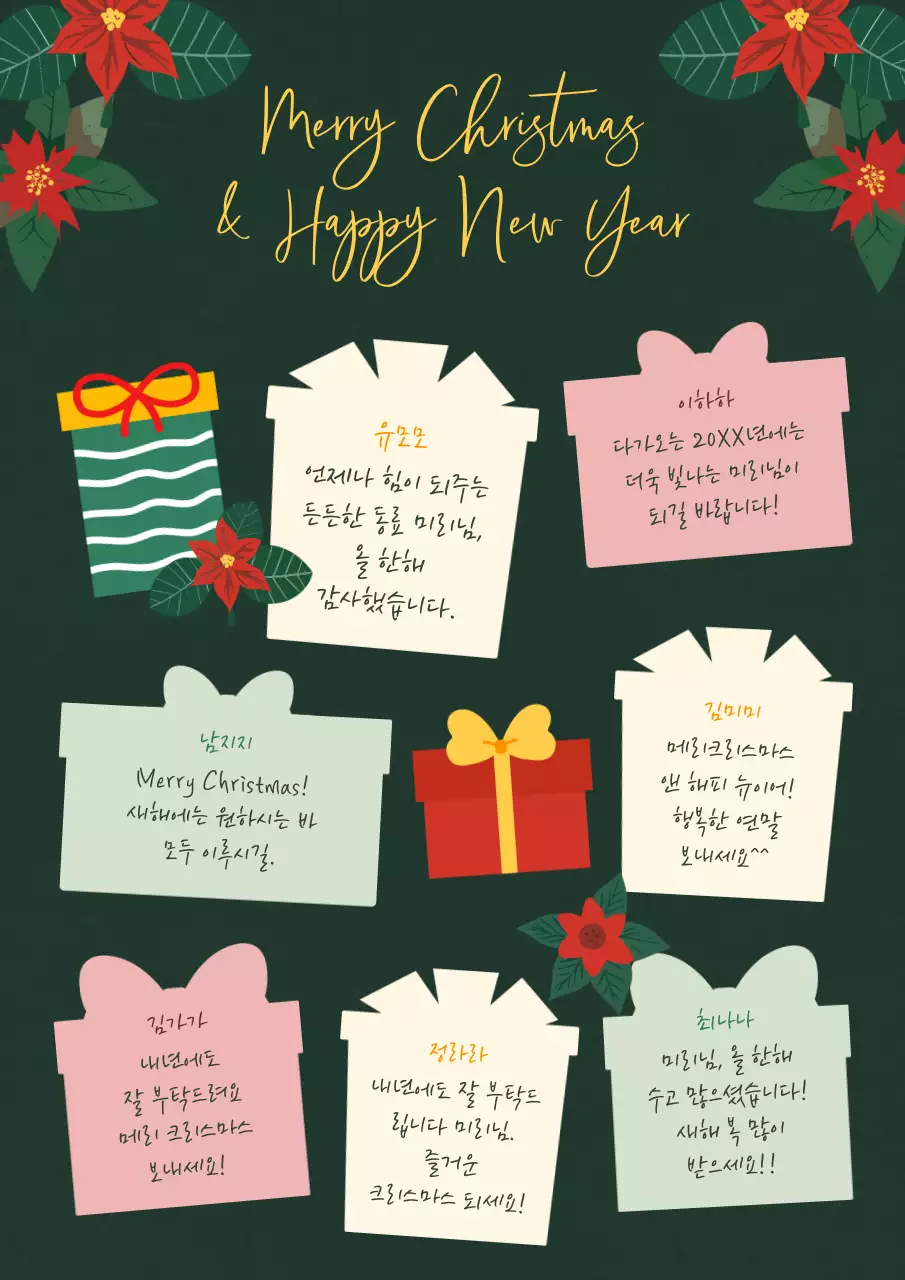 Merry Christmas
& Happy New Year
유모모
언제나 힘이 되주는
든든한 동료 미리님,
올 한해
감사했습니다.
이하하
다가오는 20XX년에는
더욱 빛나는 미리님이
되길 바랍니다!
남지지
Merry Christmas!
새해에는 원하시는 바
모두 이루시길.
김미미
메리크리스마스
앤 해피 뉴이어!
행복한 연말
보내세요^^
김가가
내년에도
잘 부탁드려요
메리 크리스마스
보내세요!
정라라
내년에도 잘 부탁드
립니다 미리님.
즐거운
크리스마스 되세요!
최나나
미리님, 올 한해
수고 많으셨습니다!
새해 복 많이
받으세요!!